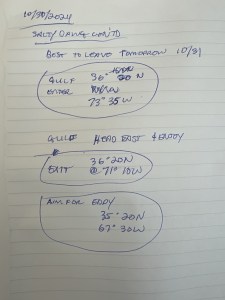 10/30/2024
SALTY DAWG CONT'D
BEST TO LEAVE TOMORROW 10/31
GULF 36° 20 N
ENTER
73° 35 W
GULF HEAD EAST & ENJOY
36° 20N
EXIT @ 71° 10W
AIM FOR EDDY
35° 20N
67° 30W